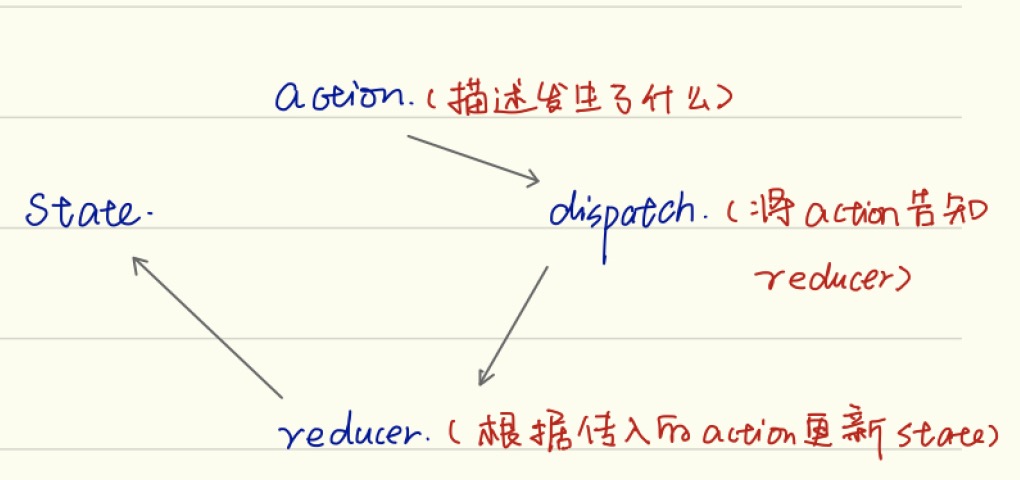 action.(描述发生了什么)
state.
dispatch.(将action告知
reducer)
reducer.(根据传入的action更新state)